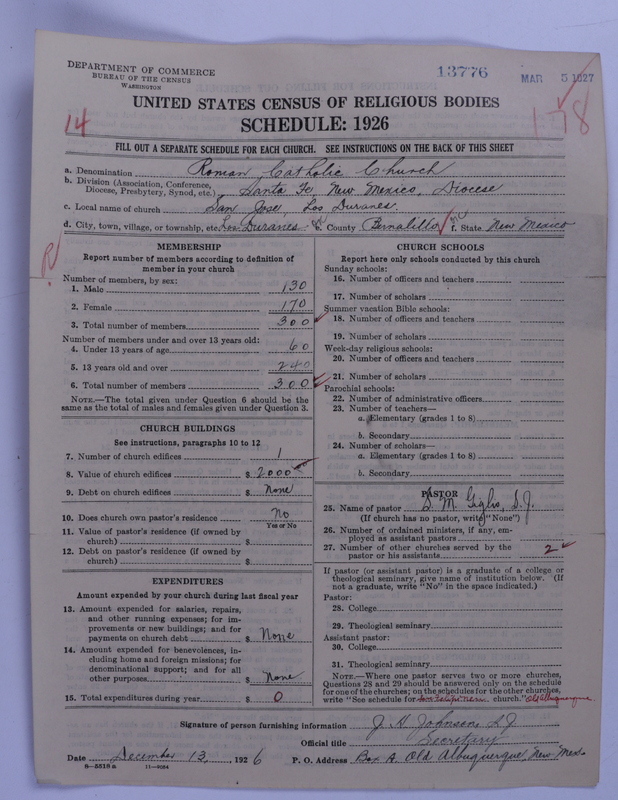 DEPARTMENT OF COMMERCE
BUREAU OF THE CENSUS
WASHINGTON
13776
MAR 5 1927
UNITED STATES CENSUS OF RELIGIOUS BODIES
SCHEDULE: 1926
14
178
FILL OUT A SEPARATE SCHEDULE FOR EACH CHURCH. SEE INSTRUCTIONS ON THE BACK OF THIS SHEET
a. Denomination Roman Catholic Church
b. Division (Association, Conference, Diocese, Presbytery, Synod, etc.) Santa Fe, New Mexico, Diocese
c. Local name of church San Jose, Los Duranes.
d. City, town, village, or township, etc. Los Duranes e. County Bernalillo f. State New Mexico
MEMBERSHIP
Report number of members according to definition of
member in your church
Number of members, by sex:
1. Male 130
2. Female 170
3. Total number of members 300
Number of members under and over 13 years old:
4. Under 13 years of age 60
5. 13 years old and over 240
6. Total number of members 300
NOTE.—The total given under Question 6 should be the
same as the total of males and females given under Question 3.
CHURCH BUILDINGS
See instructions, paragraphs 10 to 12
7. Number of church edifices 1
8. Value of church edifices $ 2000
9. Debt on church edifices $ None
10. Does church own pastor's residence No
Yes or No
11. Value of pastor's residence (if owned by
church) $
12. Debt on pastor's residence (if owned by
church) $
EXPENDITURES
Amount expended by your church during last fiscal year
13. Amount expended for salaries, repairs,
and other running expenses; for im-
provements or new buildings; and for
payments on church debt $ None
14. Amount expended for benevolences, in-
cluding home and foreign missions; for
denominational support; and for all
other purposes $ None
15. Total expenditures during year $ 0
CHURCH SCHOOLS
Report here only schools conducted by this church
Sunday schools:
16. Number of officers and teachers
17. Number of scholars
Summer vacation Bible schools:
18. Number of officers and teachers
19. Number of scholars
Week-day religious schools:
20. Number of officers and teachers
21. Number of scholars
Parochial schools:
22. Number of administrative officers
23. Number of teachers—
a. Elementary (grades 1 to 8)
b. Secondary
24. Number of scholars—
a. Elementary (grades 1 to 8)
b. Secondary
PASTOR
25. Name of pastor S. M. Giglio, S.J.
(If church has no pastor, write "None")
26. Number of ordained ministers, if any, em-
ployed as assistant pastors
27. Number of other churches served by the
pastor or his assistants 2
If pastor (or assistant pastor) is a graduate of a college or
theological seminary, give name of institution below. (If
not a graduate, write "No" in the space indicated.)
Pastor:
28. College
29. Theological seminary
Assistant pastor:
30. College
31. Theological seminary
NOTE.—Where one pastor serves two or more churches,
Questions 28 and 29 should be answered only on the schedule
for one of the churches; on the schedules for the other churches,
write "See schedule for San Felipe Neri church." Old Albuquerque
Signature of person furnishing information J. H. Johnson, S.J.
Official title Secretary
Date December 13, 1926 P. O. Address Box A Old Albuquerque New Mex.
8—5518 a 11—9064